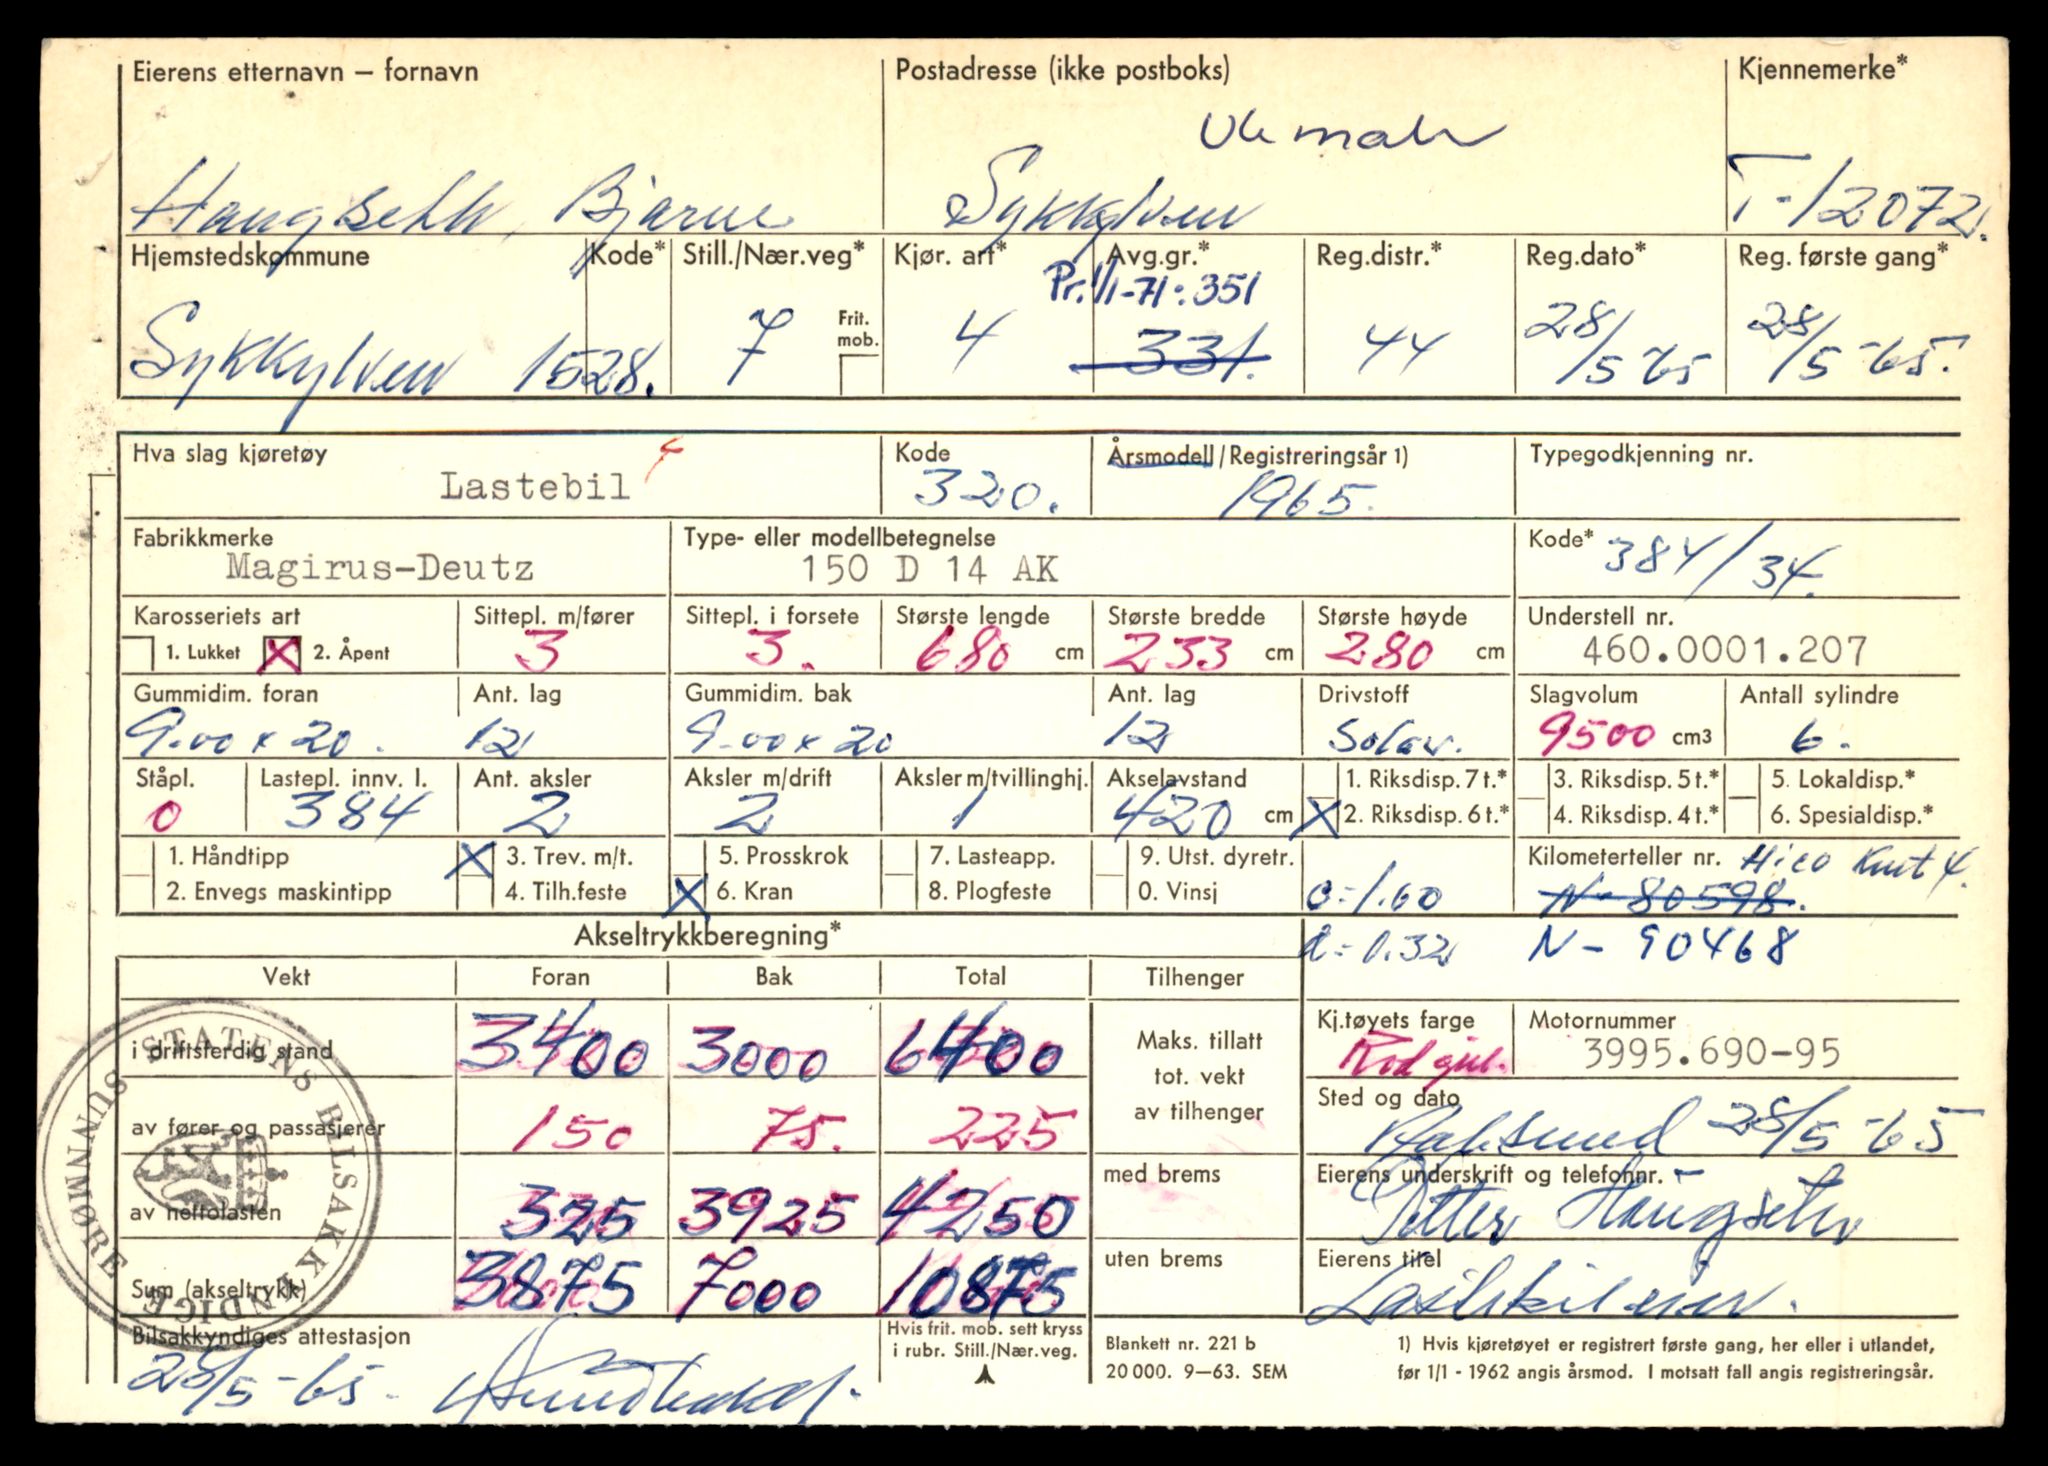 Eierens etternavn – fornavn Postadresse (ikke postboks) Kjennemerke*
Haugseth, Bjarne Sykkylven T-12072.
Hjemstedskommune Kode* Still./Nær.veg* Kjør. art* Avg.gr.* Reg.distr.* Reg.dato* Reg. første gang*
Pr. 1/1-71: 351
Sykkylven 1528. 7 Frit. mob. 4 331. 44 28/5 65 28/5-65.
Hva slag kjøretøy Kode Årsmodell/Registreringsår 1) Typegodkjenning nr.
Lastebil 320. 1965.
Fabrikkmerke Type- eller modellbetegnelse Kode* 384/34.
Magirus-Deutz 150 D 14 AK
Karosseriets art Sittepl. m/fører Sittepl. i forsete Største lengde Største bredde Største høyde Understell nr.
1. Lukket X 2. Åpent 3 3. 680 cm 233 cm 280 cm 460.0001.207
Gummidim. foran Ant. lag Gummidim. bak Ant. lag Drivstoff Slagvolum Antall sylindre
9.00 x 20. 12 9.00 x 20 12 Solar. 9500 cm3 6.
Ståpl. Lastepl. innv. l. Ant. aksler Aksler m/drift Aksler m/tvillinghj. Akselavstand 1. Riksdisp. 7 t.* 3. Riksdisp. 5 t.* 5. Lokaldisp.*
0 384 2 2 1 420 cm X 2. Riksdisp. 6 t.* 4. Riksdisp. 4 t.* 6. Spesialdisp.*
1. Håndtipp X 3. Trev. m/t. 5. Prosskrok 7. Lasteapp. 9. Utst. dyretr. Kilometerteller nr. Hico Knut 4.
2. Envegs maskintipp 4. Tilh.feste X 6. Kran 8. Plogfeste 0. Vinsj c = 1.60 N- 80598.
Akseltrykkberegning* d = 0.32 N - 90468
Vekt Foran Bak Total Tilhenger
i driftsferdig stand 3400 3000 6400 Maks. tillatt tot. vekt av tilhenger Kj.tøyets farge Motornummer
Rød gul. 3995.690-95
av fører og passasjerer 150 75. 225 Sted og dato
28/5-65
av nettolasten 325 3925 4250 med brems Eierens underskrift og telefonnr.
Petter Haugseth
Sum (akseltrykk) 3875 7000 10875 uten brems Eierens titel
Lastebileier.
STATENS BILSAKKYNDIGE SUNNMØRE
Bilsakkyndiges attestasjon Hvis frit. mob. sett kryss i rubr. Still./Nær.veg. Blankett nr. 221 b 1) Hvis kjøretøyet er registrert første gang, her eller i utlandet,
28/5-65. 20 000. 9—63. SEM før 1/1 - 1962 angis årsmod. I motsatt fall angis registreringsår.